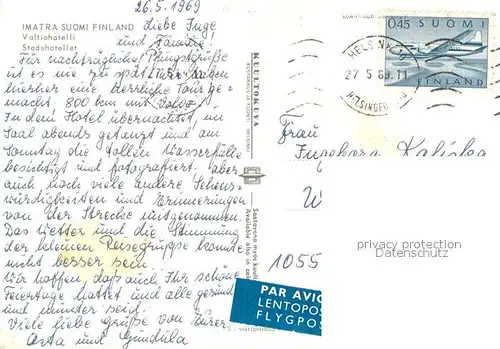 26.5.1969
IMATRA SUOMI FINLAND
Valtiohotelli
Stadshotellet
Liebe Inge
und Familie!
Für nachträgliche Pfingstgrüße
ist es nie zu spät. Wir haben
hierher eine herrliche Tour ge-
macht. 800 km mit Volvo.
In dem Hotel übernachtet, im
Saal abends getanzt und am
Sonntag die tollen Wasserfälle
besichtigt und fotografiert. Aber
auch noch viele andere Sehens-
würdigkeiten und Erinnerungen
von der Strecke mitgenommen.
Das Wetter und die Stimmung
der kleinen Reisegruppe konnte
nicht besser sein.
Wir hoffen, daß auch Ihr schöne
Feiertage hattet und alle gesund
und munter seid.
Viele liebe Grüße von Eurer
Asta und Gundula
KUULTOKUVA
0,45 SUOMI
FINLAND
HELSINKI
27.5.69.11
HELSINGFORS
Frau
Ingeborg Kaliska
W
1055
privacy protection
Datenschutz
PAR AVIO
LENTOPOS
FLYGPOS